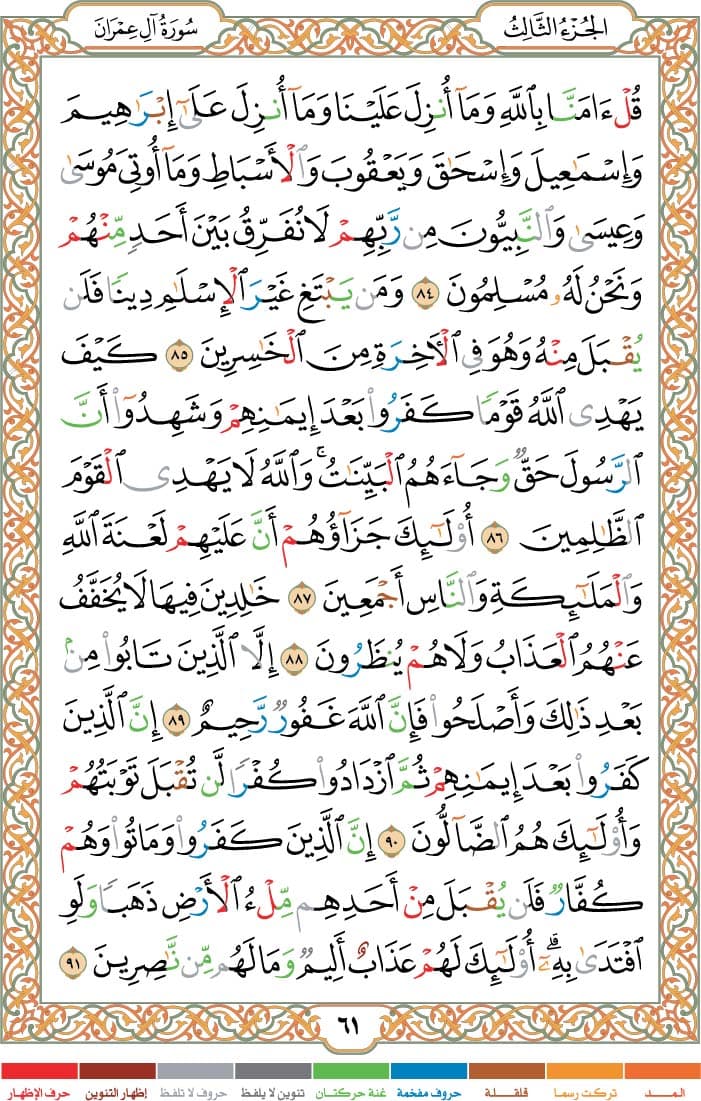 الجُزْءُ الثَّالِثُ
سُورَةُ آلِ عِمْرَانَ
قُلْ ءَامَنَّا بِٱللَّهِ وَمَآ أُنزِلَ عَلَيْنَا وَمَآ أُنزِلَ عَلَىٰٓ إِبْرَٰهِيمَ
وَإِسْمَٰعِيلَ وَإِسْحَٰقَ وَيَعْقُوبَ وَٱلْأَسْبَاطِ وَمَآ أُوتِىَ مُوسَىٰ
وَعِيسَىٰ وَٱلنَّبِيُّونَ مِن رَّبِّهِمْ لَا نُفَرِّقُ بَيْنَ أَحَدٍ مِّنْهُمْ
وَنَحْنُ لَهُۥ مُسْلِمُونَ ٨٤ وَمَن يَبْتَغِ غَيْرَ ٱلْإِسْلَٰمِ دِينًا فَلَن
يُقْبَلَ مِنْهُ وَهُوَ فِى ٱلْأَخِرَةِ مِنَ ٱلْخَٰسِرِينَ ٨٥ كَيْفَ
يَهْدِى ٱللَّهُ قَوْمًا كَفَرُوا۟ بَعْدَ إِيمَٰنِهِمْ وَشَهِدُوٓا۟ أَنَّ
ٱلرَّسُولَ حَقٌّ وَجَآءَهُمُ ٱلْبَيِّنَٰتُ ۚ وَٱللَّهُ لَا يَهْدِى ٱلْقَوْمَ
ٱلظَّٰلِمِينَ ٨٦ أُو۟لَٰٓئِكَ جَزَآؤُهُمْ أَنَّ عَلَيْهِمْ لَعْنَةَ ٱللَّهِ
وَٱلْمَلَٰٓئِكَةِ وَٱلنَّاسِ أَجْمَعِينَ ٨٧ خَٰلِدِينَ فِيهَا لَا يُخَفَّفُ
عَنْهُمُ ٱلْعَذَابُ وَلَا هُمْ يُنظَرُونَ ٨٨ إِلَّا ٱلَّذِينَ تَابُوا۟ مِنۢ
بَعْدِ ذَٰلِكَ وَأَصْلَحُوا۟ فَإِنَّ ٱللَّهَ غَفُورٌ رَّحِيمٌ ٨٩ إِنَّ ٱلَّذِينَ
كَفَرُوا۟ بَعْدَ إِيمَٰنِهِمْ ثُمَّ ٱزْدَادُوا۟ كُفْرًا لَّن تُقْبَلَ تَوْبَتُهُمْ
وَأُو۟لَٰٓئِكَ هُمُ ٱلضَّآلُّونَ ٩٠ إِنَّ ٱلَّذِينَ كَفَرُوا۟ وَمَاتُوا۟ وَهُمْ
كُفَّارٌ فَلَن يُقْبَلَ مِنْ أَحَدِهِم مِّلْءُ ٱلْأَرْضِ ذَهَبًا وَلَوِ
ٱفْتَدَىٰ بِهِۦٓ ۗ أُو۟لَٰٓئِكَ لَهُمْ عَذَابٌ أَلِيمٌ وَمَا لَهُم مِّن نَّٰصِرِينَ ٩١
٦١
المـــد
تركت رسما
قلقـلة
حروف مفخمة
غنة حركتان
تنوين لا يلفظ
حروف لا تلفظ
إظهار التنوين
حرف الإظهار